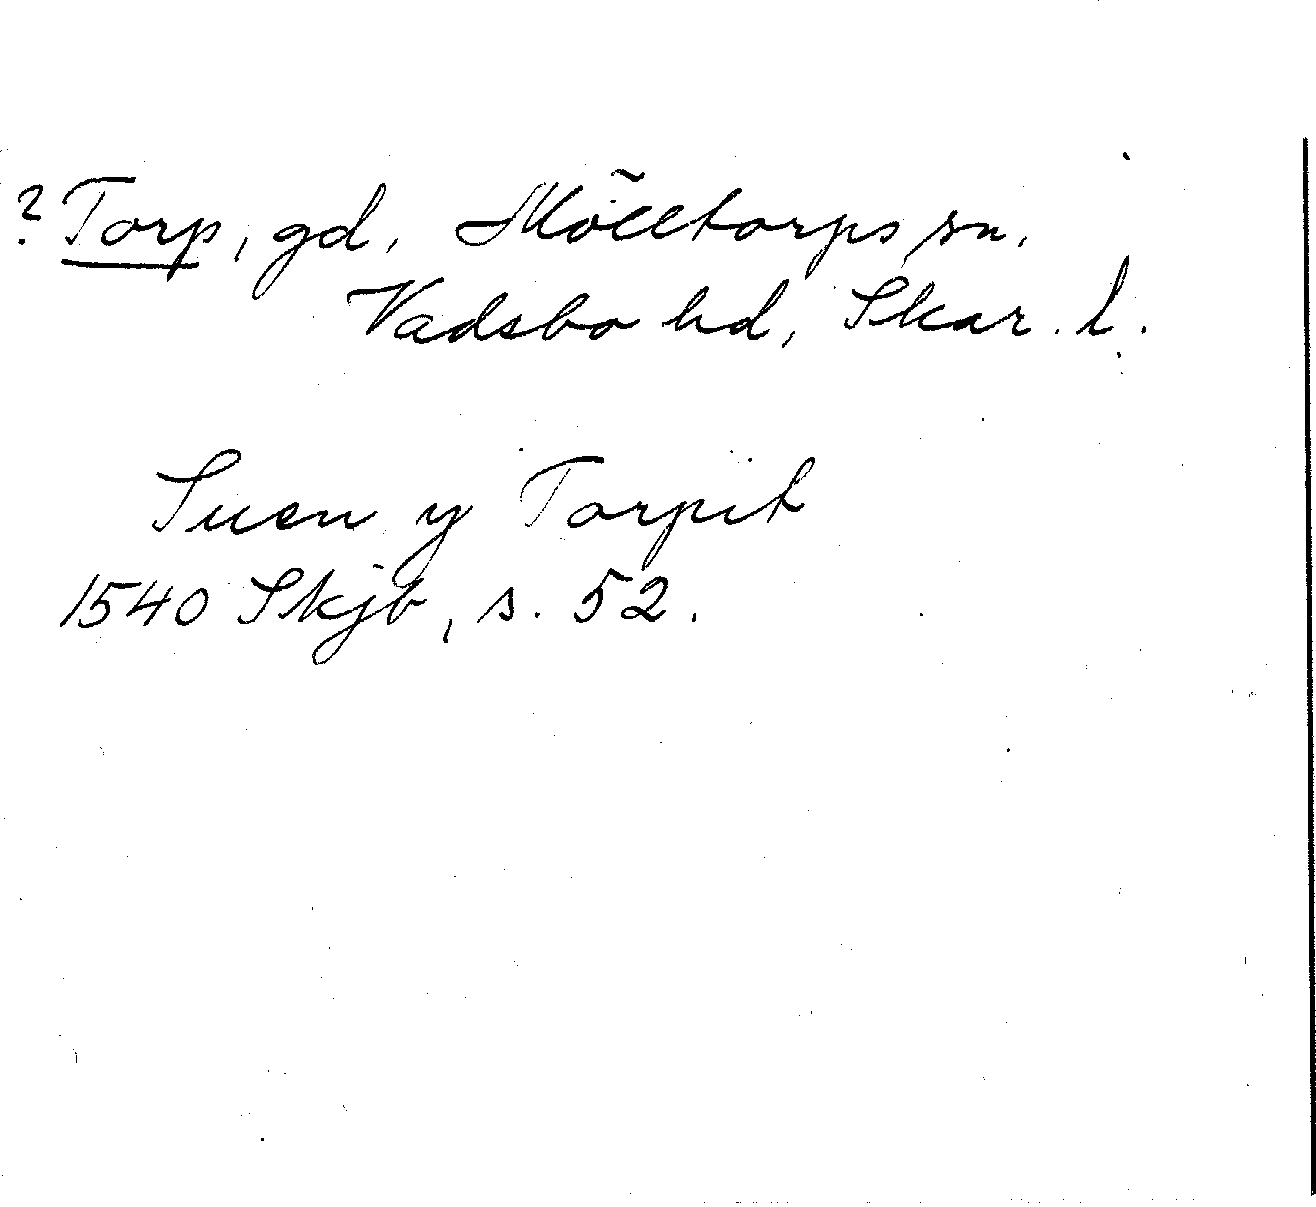 ? Torp, gd, Mölltorps sn,
Vadsbo hd, Skar. l.
Suen y Torpit
1540 Skjb, s. 52.